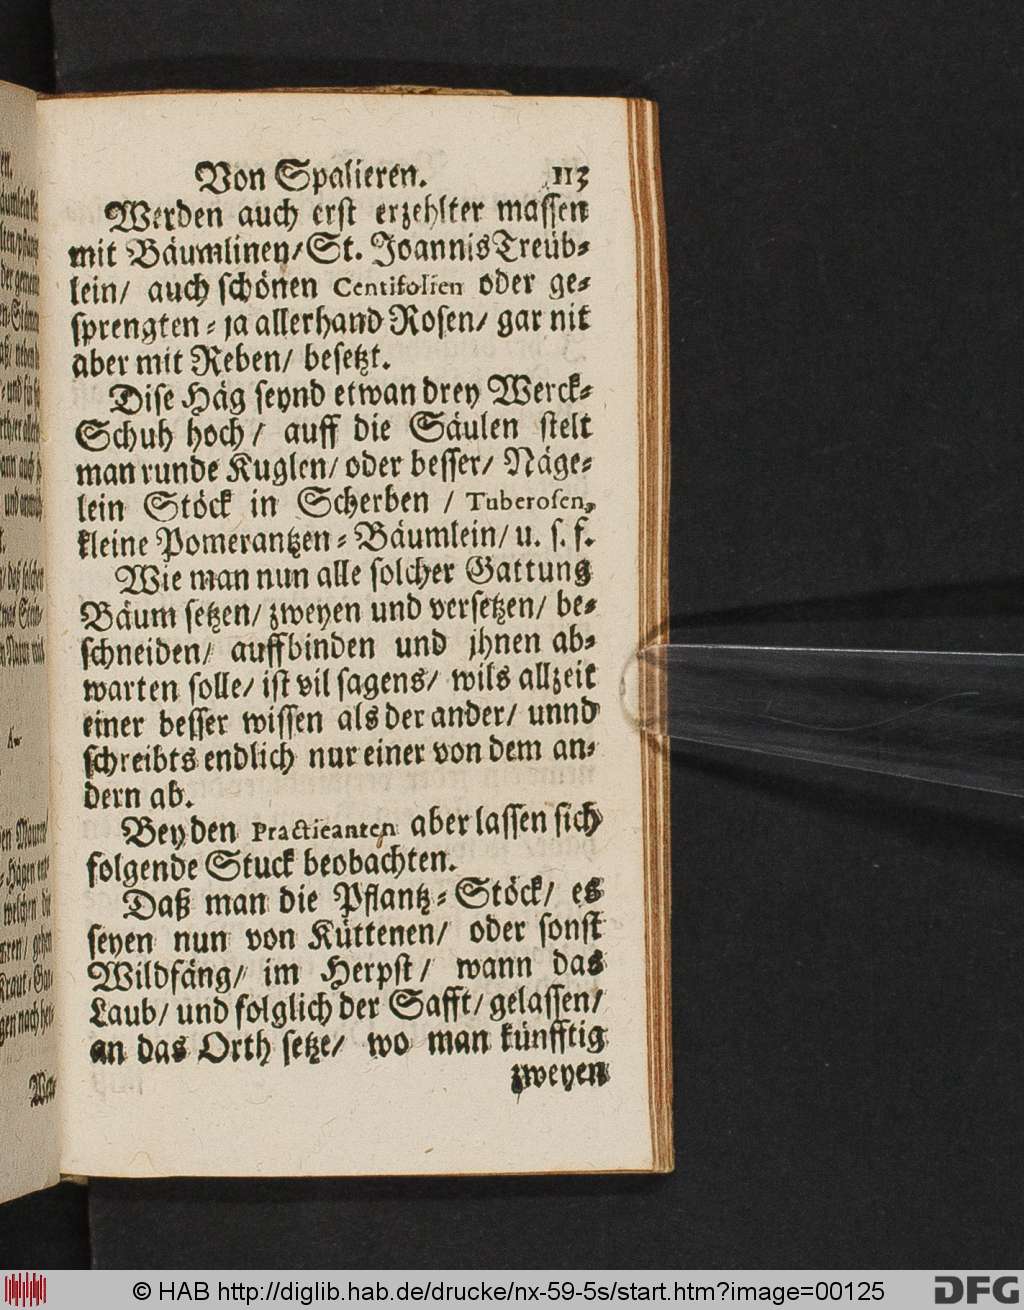 Von Spalieren. 113
Werden auch erst erzehlter massen
mit Bäumlinen/ St. Joannis Treüb-
lein/ auch schönen Centifolien oder ge-
sprengten- ja allerhand Rosen/ gar nit
aber mit Reben/ besetzt.
Dise Häg seynd etwan drey Werck-
Schuh hoch/ auff die Säulen stelt
man runde Kuglen/ oder besser/ Näge-
lein Stöck in Scherben / Tuberosen,
kleine Pomerantzen-Bäumlein/ u. s. f.
Wie man nun alle solcher Gattung
Bäum setzen/ zweyen und versetzen/ be-
schneiden/ auffbinden und jhnen ab-
warten solle/ ist vil sagens/ wils allzeit
einer besser wissen als der ander/ unnd
schreibts endlich nur einer von dem an-
dern ab.
Bey den Practicanten aber lassen sich
folgende Stuck beobachten.
Daß man die Pflantz-Stöck/ es
seyen nun von Küttenen/ oder sonst
Wildfäng/ im Herpst/ wann das
Laub/ und folglich der Safft/ gelassen/
an das Orth setze/ wo man künfftig
zweyen
© HAB http://diglib.hab.de/drucke/nx-59-5s/start.htm?image=00125
DFG